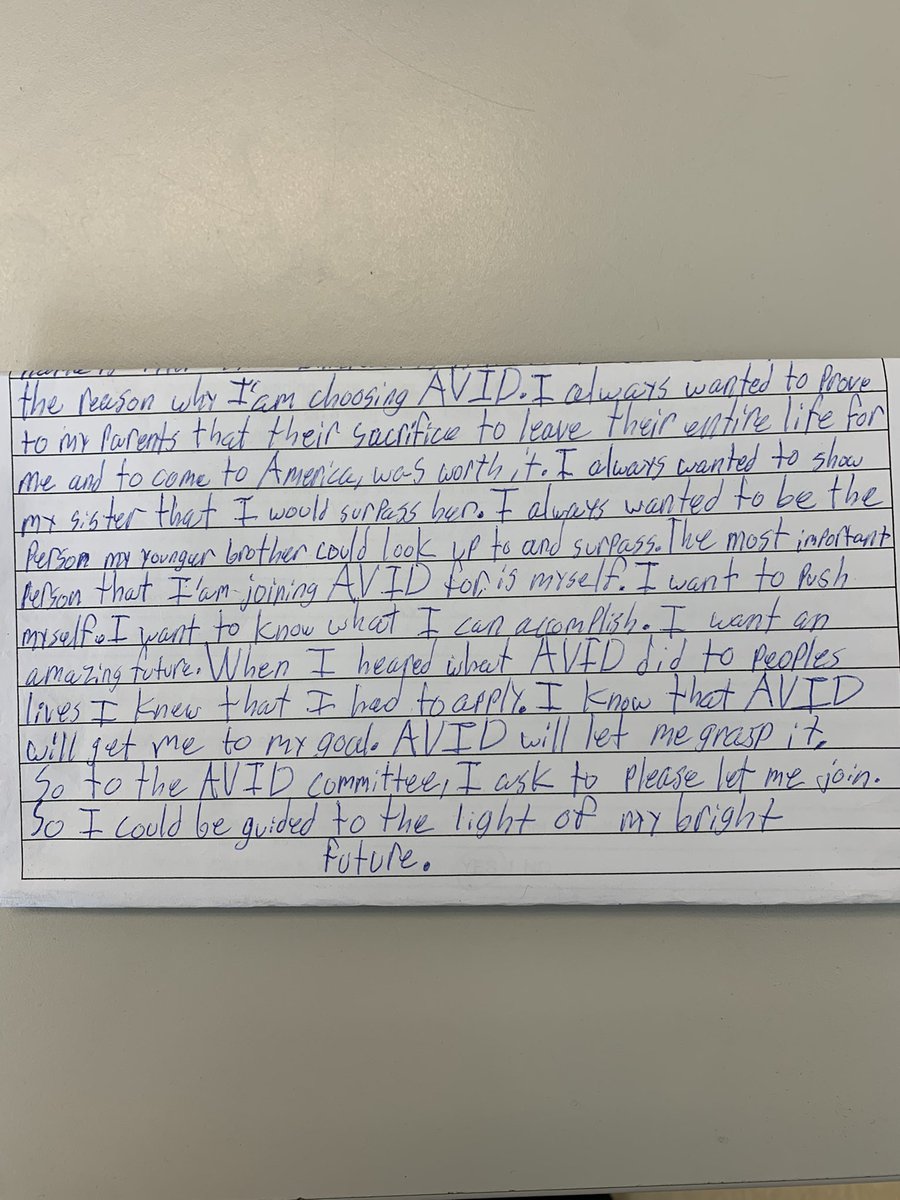 the reason why I'am choosing AVID. I always wanted to prove
to my parents that their sacrifice to leave their entire life for
me and to come to America, was worth it. I always wanted to show
my sister that I would surpass her. I always wanted to be the
Person my younger brother could look up to and surpass. The most important
Person that I'am joining AVID for, is myself. I want to Push
myself. I want to know what I can accomplish. I want an
amazing future. When I heared what AVID did to peoples
lives I knew that I had to apply. I know that AVID
will get me to my goal. AVID will let me grasp it.
So to the AVID committee, I ask to please let me join.
So I could be guided to the light of my bright
future.